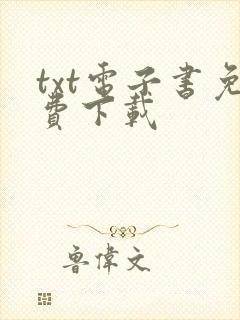 txt電子書免
費下載
魯偉文